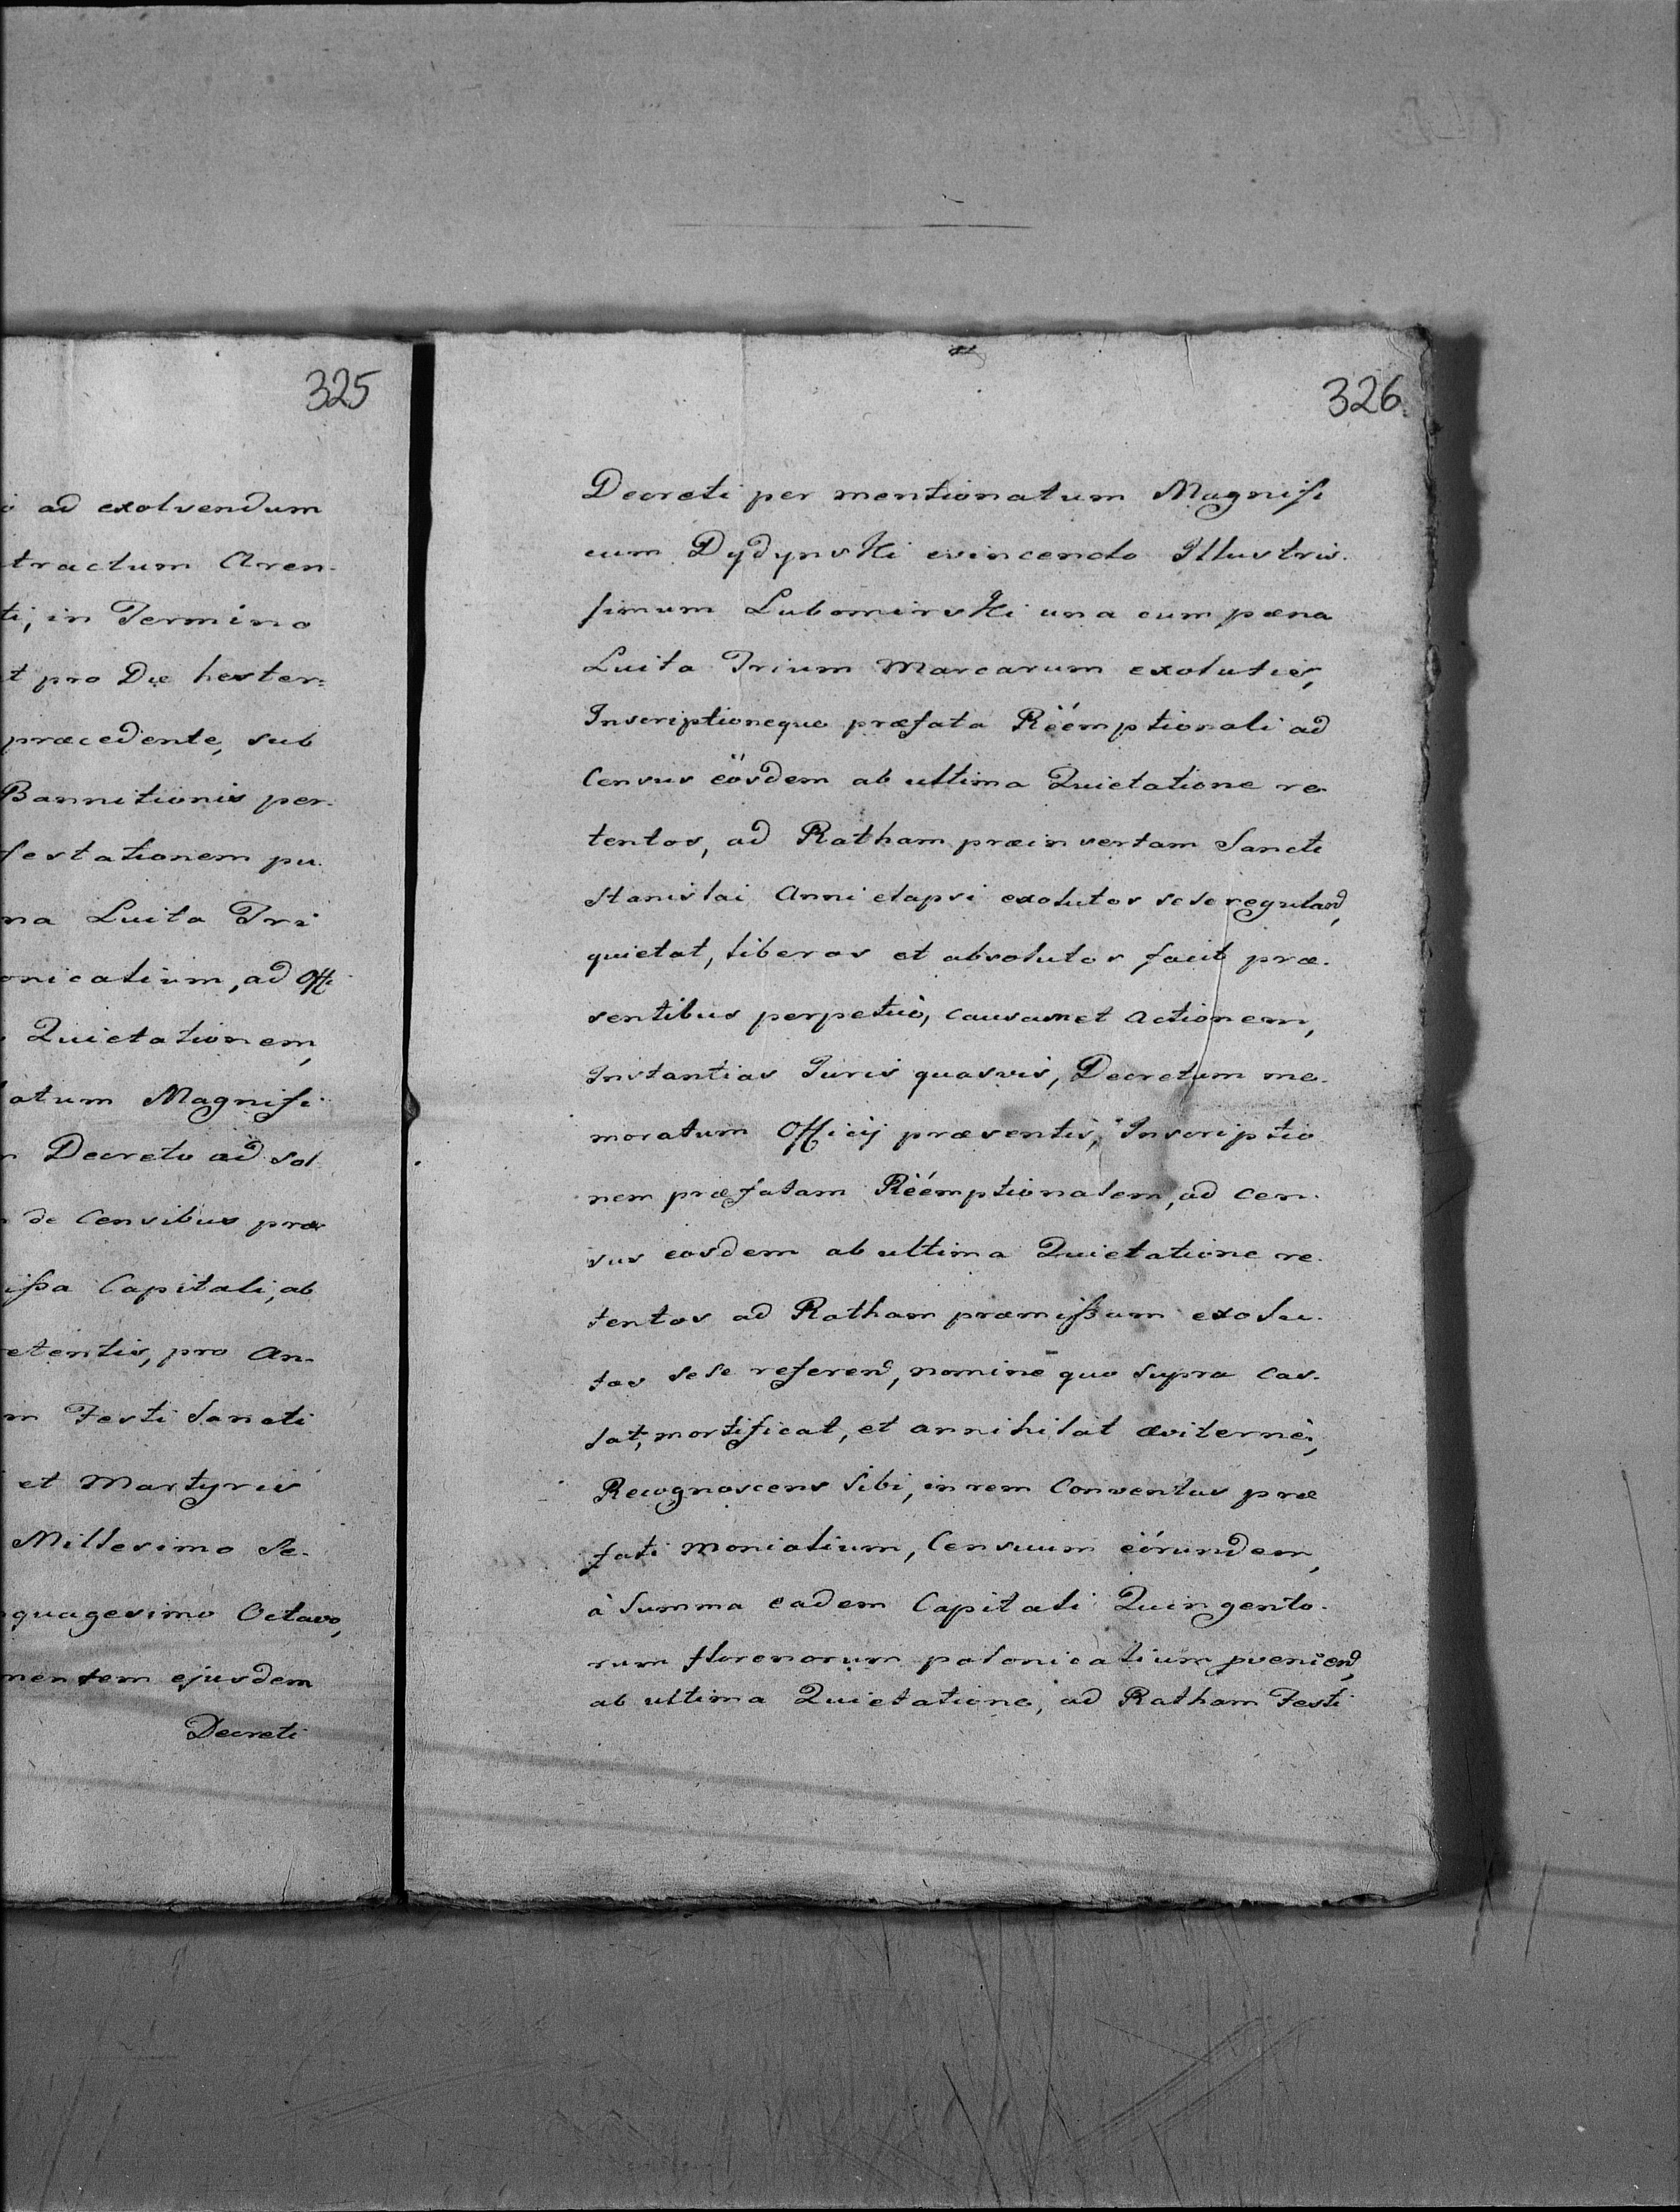 325
ad exolvendum
tractum Aren-
ti, in Termino
t pro Die hester=
præcedente, sub
Bannitionis per-
festationem pu-
na Luita Tri
onicalium, ad Offi
Quietationem,
latum Magnifi
Decreto ad sol
de Censibus præ
ißa Capitali, ab
etentis, pro An-
m Festi Sancti
et Martyris
Millesimo Se-
quagesimo Octavo,
mentem ejusdem
Decreti
326
Decreti per mentionatum Magnifi
cum Dydynski evincendo Illustris-
simum Lubomirski una cum pæna
Luita Trium Marcarum exolutis,
Inscriptioneque præfata Rëémptionali ad
Census ëósdem ab ultima Quietatione re
tentos, ad Ratham præinsertam Sancti
Stanislai Anni elapsi exolutos sese reguland,
quietat, liberos et absolutos facit præ-
sentibus perpetuò, causam et actionem,
Instantias Juris quasvis, Decretum me-
moratum Officij præsentis, Inscriptio
nem præfatam Rëémptionalem, ad Cen-
sus eosdem ab ultima Quietatione re-
tentos ad Ratham præmißam exolu-
tos sese referend, nomine quo supra Cas-
sat, mortificat, et annihilat æviternè,
Recognoscens sibi, in rem Conventus præ
fati Monialium, Censuum ëórundem,
à Summa eadem Capitali Quingento-
rum florenorum polonicalium pveniend,
ab ultima Quietatione, ad Ratham Festi